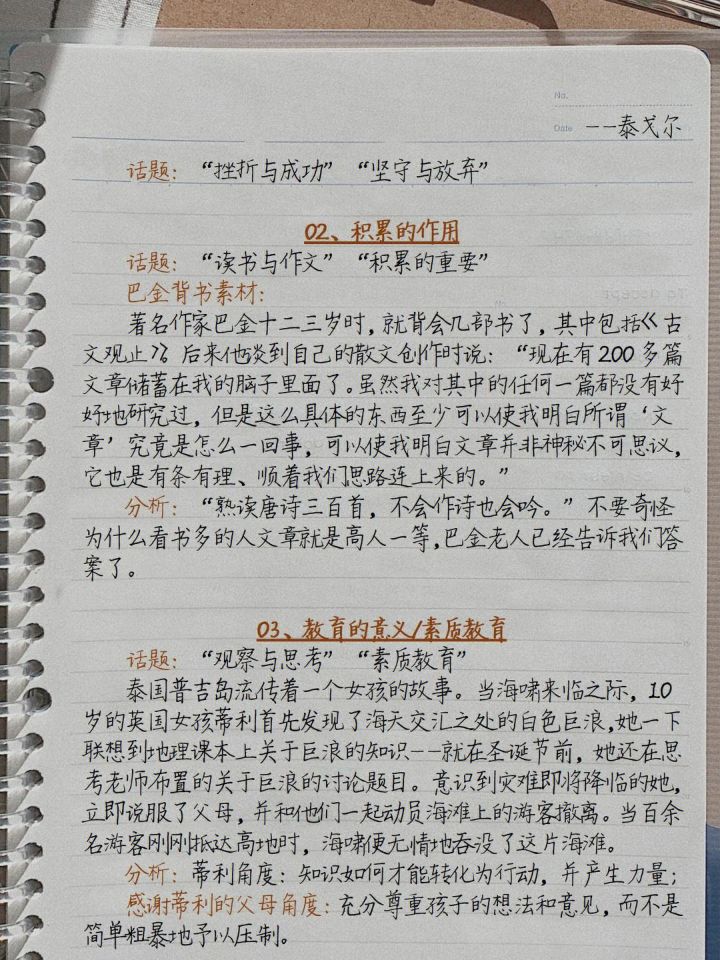 No.
Date
——泰戈尔
话题：“挫折与成功”“坚守与放弃”
02、积累的作用
话题：“读书与作文”“积累的重要”
巴金背书素材：
著名作家巴金十二三岁时，就背会几部书了，其中包括《古
文观止》。后来他谈到自己的散文创作时说：“现在有200多篇
文章储蓄在我的脑子里面了。虽然我对其中的任何一篇都没有好
好地研究过，但是这么具体的东西至少可以使我明白所谓‘文
章’究竟是怎么一回事，可以使我明白文章并非神秘不可思议，
它也是有条有理、顺着我们思路连上来的。”
分析：“熟读唐诗三百首，不会作诗也会吟。”不要奇怪
为什么看书多的人文章就是高人一等，巴金老人已经告诉我们答
案了。
03、教育的意义/素质教育
话题：“观察与思考”“素质教育”
泰国普吉岛流传着一个女孩的故事。当海啸来临之际，10
岁的英国女孩蒂利首先发现了海天交汇之处的白色巨浪，她一下
联想到地理课本上关于巨浪的知识——就在圣诞节前，她还在思
考老师布置的关于巨浪的讨论题目。意识到灾难即将降临的她，
立即说服了父母，并和他们一起动员海滩上的游客撤离。当百余
名游客刚刚抵达高地时，海啸便无情地吞没了这片海滩。
分析：蒂利角度：知识如何才能转化为行动，并产生力量；
感谢蒂利的父母角度：充分尊重孩子的想法和意见，而不是
简单粗暴地予以压制。